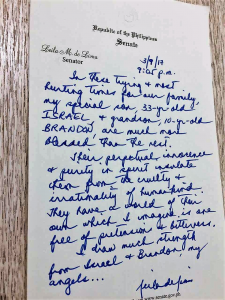 Republic of the Philippines
Senate
Leila M. de Lima
Senator
3/9/17
9:05 p.m.
In these trying & most
hurting times for our family,
my special son, 33-yr-old
ISRAEL & grandson, 10-yr-old
BRANDON are much more
blessed than the rest.
Their perpetual innocence
& purity in spirit insulate
them from the cruelty &
irrationality of humankind.
They have a world of their
own which I imagine is are
free of pretension & bitterness.
I draw much strength
from Israel & Brandon my
angels...
www.senate.gov.ph